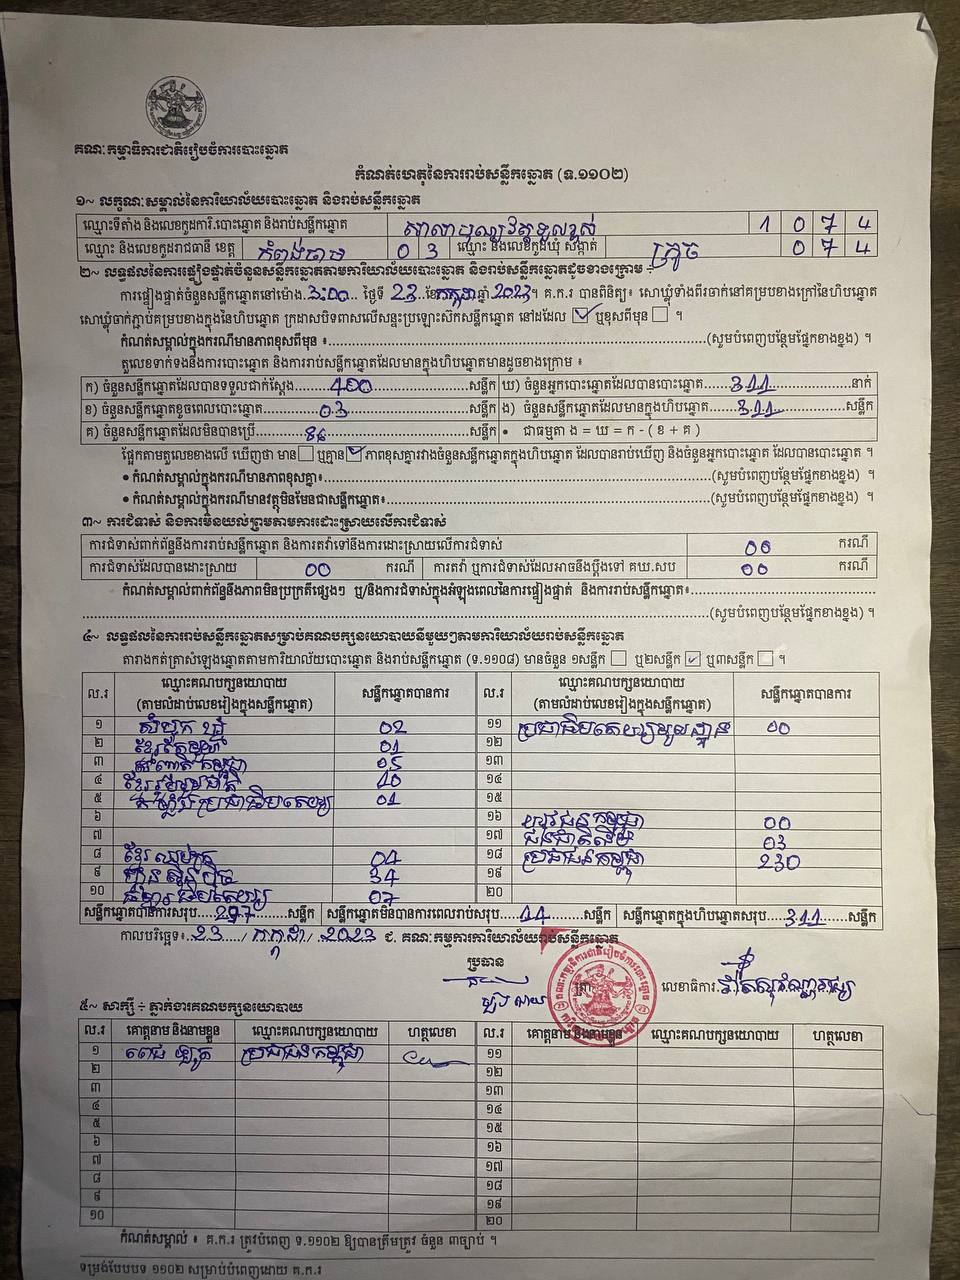 គណៈកម្មាធិការជាតិរៀបចំការបោះឆ្នោត
កំណត់ហេតុនៃការរាប់សន្លឹកឆ្នោត (ទ.១១០២)
១~ លក្ខណៈសម្គាល់នៃការិយាល័យបោះឆ្នោត និងរាប់សន្លឹកឆ្នោត
ឈ្មោះទីតាំង និងលេខកូដការិ.បោះឆ្នោត និងរាប់សន្លឹកឆ្នោត 1 0 7 4
ឈ្មោះ និងលេខកូដរាជធានី ខេត្ត កំពង់ចាម 0 3 ឈ្មោះ និងលេខកូដឃុំ សង្កាត់ ក្រូច 0 7 4
២~ លទ្ធផលនៃការផ្ទៀងផ្ទាត់ចំនួនសន្លឹកឆ្នោតតាមការិយាល័យបោះឆ្នោត និងរាប់សន្លឹកឆ្នោតដូចខាងក្រោម ÷
ការផ្ទៀងផ្ទាត់ចំនួនសន្លឹកឆ្នោតនៅម៉ោង 3:00 ថ្ងៃទី 23 ខែកក្កដា ឆ្នាំ 2023។ គ.ក.រ បានពិនិត្យ៖ សោឃ្លុំទាំងពីរចាក់នៅគម្របខាងក្រៅនៃហិបឆ្នោត
សោឃ្លុំចាក់ភ្ជាប់គម្របខាងក្នុងនៃហិបឆ្នោត ក្រដាសបិទពាសលើសន្ទះប្រឡោះស៊កសន្លឹកឆ្នោត នៅដដែល ឬខុសពីមុន ។
កំណត់សម្គាល់ក្នុងករណីមានភាពខុសពីមុន ៖ (សូមបំពេញបន្ថែមផ្នែកខាងខ្នង) ។
តួលេខទាក់ទងនឹងការបោះឆ្នោត និងការរាប់សន្លឹកឆ្នោតដែលមានក្នុងហិបឆ្នោតមានដូចខាងក្រោម ៖
ក) ចំនួនសន្លឹកឆ្នោតដែលបានទទួលជាក់ស្តែង 400 សន្លឹក ឃ) ចំនួនអ្នកបោះឆ្នោតដែលបានបោះឆ្នោត 311 នាក់
ខ) ចំនួនសន្លឹកឆ្នោតខូចពេលបោះឆ្នោត 03 សន្លឹក ង) ចំនួនសន្លឹកឆ្នោតដែលមានក្នុងហិបឆ្នោត 311 សន្លឹក
គ) ចំនួនសន្លឹកឆ្នោតដែលមិនបានប្រើ 86 សន្លឹក • ជាធម្មតា ង = ឃ = ក - ( ខ + គ )
ផ្អែកតាមតួលេខខាងលើ ឃើញថា មាន ឬគ្មាន ភាពខុសគ្នារវាងចំនួនសន្លឹកឆ្នោតក្នុងហិបឆ្នោត ដែលបានរាប់ឃើញ និងចំនួនអ្នកបោះឆ្នោត ដែលបានបោះឆ្នោត ។
• កំណត់សម្គាល់ក្នុងករណីមានភាពខុសគ្នា៖ (សូមបំពេញបន្ថែមផ្នែកខាងខ្នង) ។
• កំណត់សម្គាល់ក្នុងករណីមានវត្ថុមិនមែនជាសន្លឹកឆ្នោត៖ (សូមបំពេញបន្ថែមផ្នែកខាងខ្នង) ។
៣~ ការជំទាស់ និងការមិនយល់ព្រមតាមការដោះស្រាយលើការជំទាស់
ការជំទាស់ពាក់ព័ន្ធនឹងការរាប់សន្លឹកឆ្នោត និងការតវ៉ាទៅនឹងការដោះស្រាយលើការជំទាស់ 00 ករណី
ការជំទាស់ដែលបានដោះស្រាយ 00 ករណី ការតវ៉ា ឬការជំទាស់ដែលអាចនឹងប្តឹងទៅ គឃ.សប 00 ករណី
កំណត់សម្គាល់ពាក់ព័ន្ធនឹងភាពមិនប្រក្រតីផ្សេងៗ ឬ/និងការជំទាស់ក្នុងអំឡុងពេលនៃការផ្ទៀងផ្ទាត់ និងការរាប់សន្លឹកឆ្នោត៖
(សូមបំពេញបន្ថែមផ្នែកខាងខ្នង) ។
៤~ លទ្ធផលនៃការរាប់សន្លឹកឆ្នោតសម្រាប់គណបក្សនយោបាយនីមួយៗតាមការិយាល័យរាប់សន្លឹកឆ្នោត
តារាងកត់ត្រាសំឡេងឆ្នោតតាមការិយាល័យបោះឆ្នោត និងរាប់សន្លឹកឆ្នោត (ទ.១១០៨) មានចំនួន ១សន្លឹក ឬ២សន្លឹក ឬ៣សន្លឹក ។
ល.រ ឈ្មោះគណបក្សនយោបាយ (តាមលំដាប់លេខរៀងក្នុងសន្លឹកឆ្នោត) សន្លឹកឆ្នោតបានការ ល.រ ឈ្មោះគណបក្សនយោបាយ (តាមលំដាប់លេខរៀងក្នុងសន្លឹកឆ្នោត) សន្លឹកឆ្នោតបានការ
១ សំបុកឃ្មុំ 02 ១១ ប្រជាធិបតេយ្យមូលដ្ឋាន 00
២ ខ្មែរតែមួយ 01 ១២
៣ កម្ពុជា 05 ១៣
៤ ខ្មែររួបរួមជាតិ 10 ១៤
៥ សម្ព័ន្ធប្រជាធិបតេយ្យ 01 ១៥
៦ ១៦ យុវជនកម្ពុជា 00
៧ ១៧ ជនជាតិដើម 03
៨ ខ្មែរ 04 ១៨ ប្រជាជនកម្ពុជា 230
៩ ហ្វ៊ុនស៊ិនប៉ិច 34 ១៩
១០ ធម្មាធិបតេយ្យ 07 ២០
សន្លឹកឆ្នោតបានការសរុប 297 សន្លឹក សន្លឹកឆ្នោតមិនបានការពេលរាប់សរុប 14 សន្លឹក សន្លឹកឆ្នោតក្នុងហិបឆ្នោតសរុប 311 សន្លឹក
កាលបរិច្ឆេទ៖ 23 / កក្កដា / 2023 ជ. គណៈកម្មការការិយាល័យរាប់សន្លឹកឆ្នោត
ប្រធាន
លេខាធិការ
៥~ សាក្សី ÷ ភ្នាក់ងារគណបក្សនយោបាយ
ល.រ គោត្តនាម និងនាមខ្លួន ឈ្មោះគណបក្សនយោបាយ ហត្ថលេខា ល.រ គោត្តនាម និងនាមខ្លួន ឈ្មោះគណបក្សនយោបាយ ហត្ថលេខា
១ ប្រជាជនកម្ពុជា ១១
២ ១២
៣ ១៣
៤ ១៤
៥ ១៥
៦ ១៦
៧ ១៧
៨ ១៨
៩ ១៩
១០ ២០
កំណត់សម្គាល់ ៖ គ.ក.រ ត្រូវបំពេញ ទ.១១០២ ឱ្យបានត្រឹមត្រូវ ចំនួន ៣ច្បាប់ ។
ទម្រង់បែបបទ ១១០២ សម្រាប់បំពេញដោយ គ.ក.រ